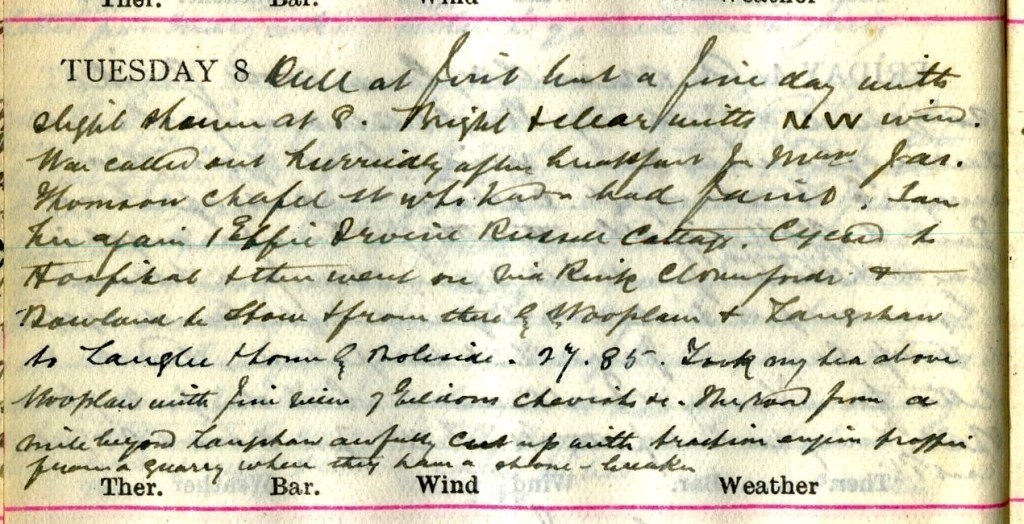 Ther. Bar. Wind Weather
TUESDAY 8 Dull at first but a fine day with
slight shower at 8. Bright & clear with NW wind.
Was called out hurriedly after breakfast for Mrs Jas.
Thomson Chapel St who had a bad faint. Saw
her again & Effie Irvine Russell Cottage. Cycled to
Hospital & then went on via Rink Clovenfords &
Bowland to Stow & from there by Wooplaw & Langshaw
to Langlee & home by Boleside. 27.85. Took my tea above
Wooplaw with fine view of Eildons Cheviots &c. The road from a
mile beyond Langshaw awfully cut up with traction engine traffic
from a quarry where they have a stone-breaker
Ther. Bar. Wind Weather